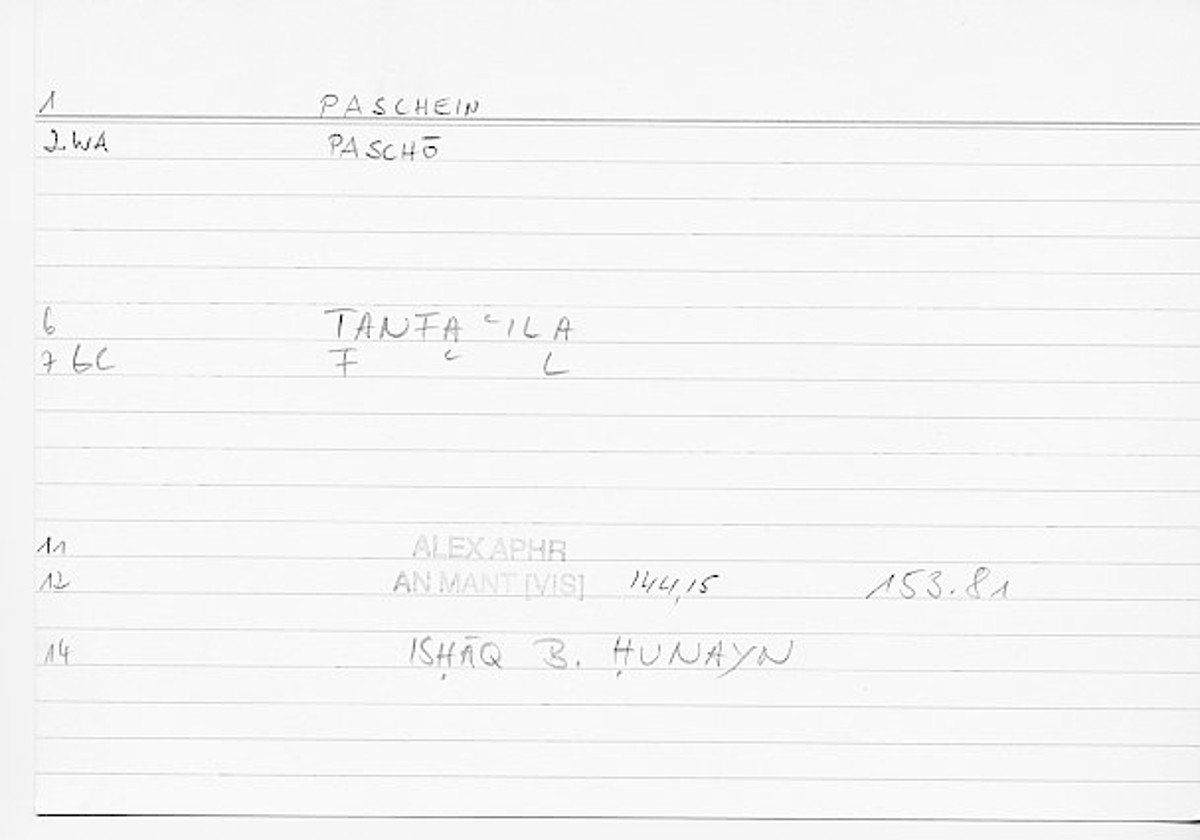 1 PASCHEIN
2.WA PASCHŌ
6 TANFAʿILA
7 GC F ʿ L
11 ALEX APHR
12 AN MANT [VIS] 144,15 153.81
14 ISḤĀQ B. ḤUNAYN